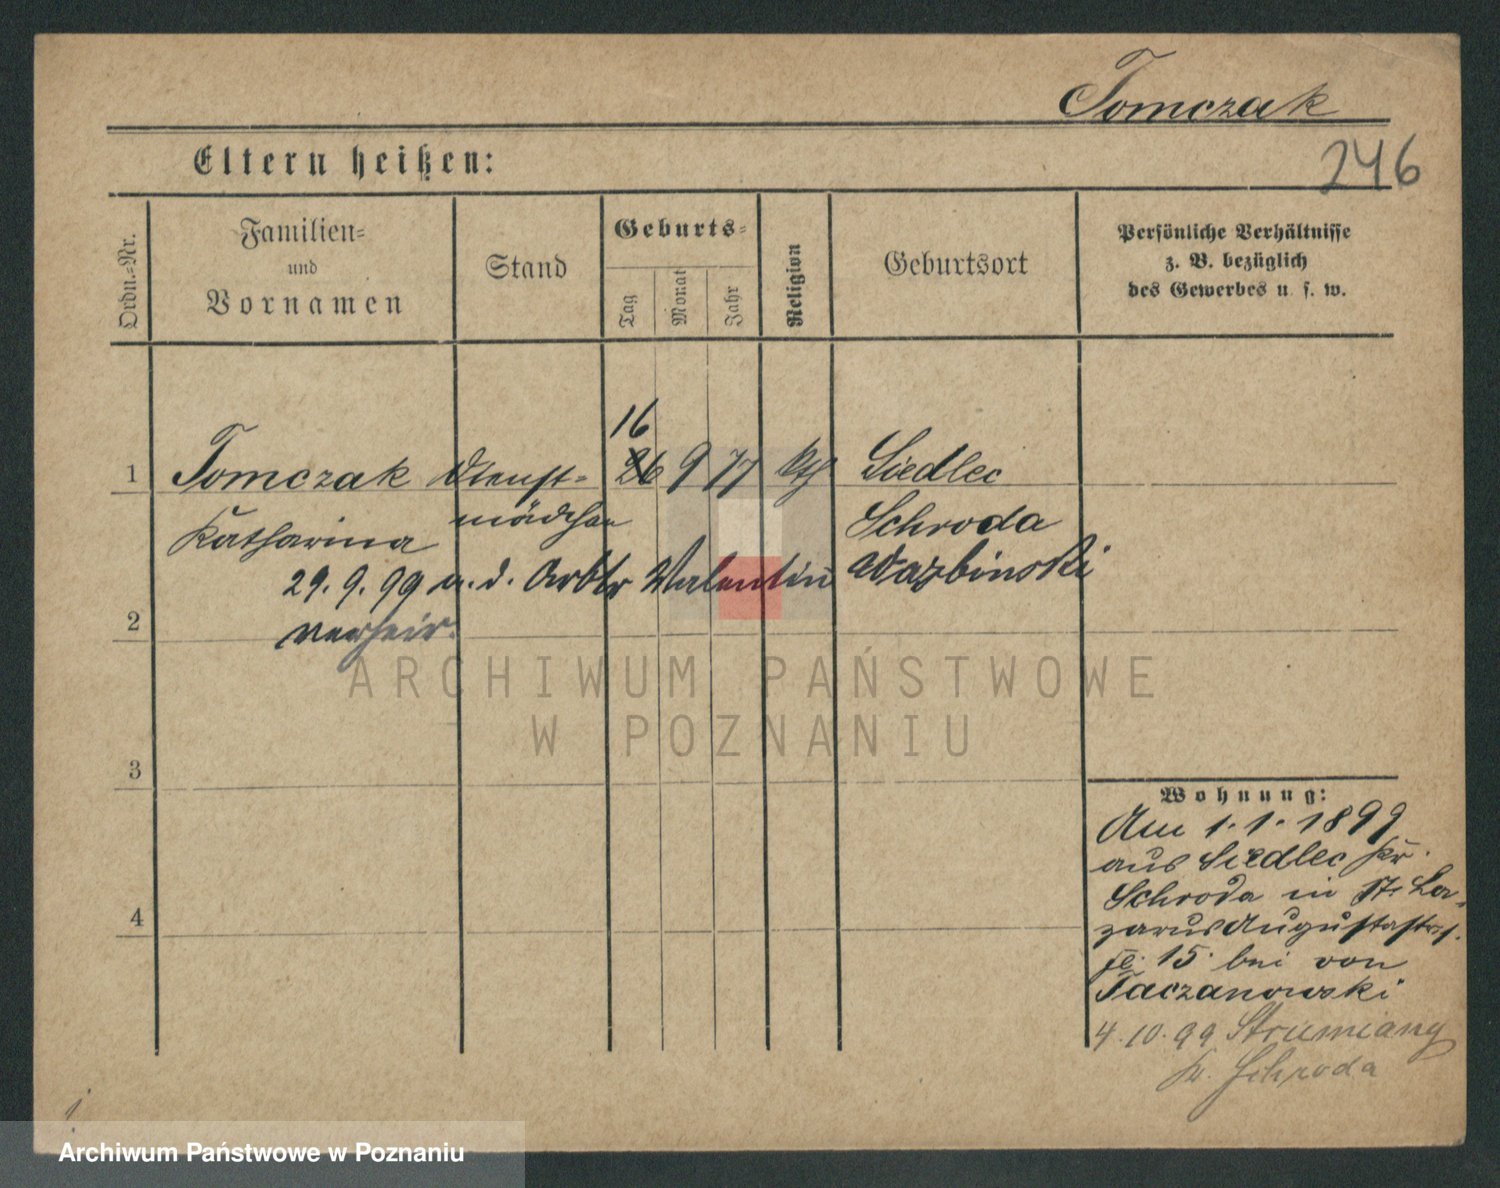 Tomczak
246
Eltern heißen:
Ordn.-Nr.
Familien-
und
Vornamen
Stand
Geburts-
Tag
Monat
Jahr
Religion
Geburtsort
Persönliche Verhältnisse
z. B. bezüglich
des Gewerbes u. s. w.
16
1 Tomczak Dienst- 26 9 77 kth Siedlec
Katharina mädchen Schroda
29. 9. 99 m. d. Arbtr Valentin Wazbinski
2 verheir.
ARCHIWUM PAŃSTWOWE
W POZNANIU
3
4
Wohnung:
Am 1. 1. 1899
aus Siedlec Kr.
Schroda in St. La-
zarus Augustastr.
15 bei von
Taczanowski
4. 10. 99 Strumiany
Kr. Schroda
Archiwum Państwowe w Poznaniu